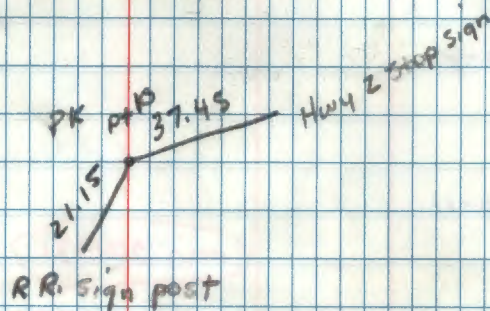 PK pt P
37.45
Hwy 2 stop sign
21.15
R R. sign post